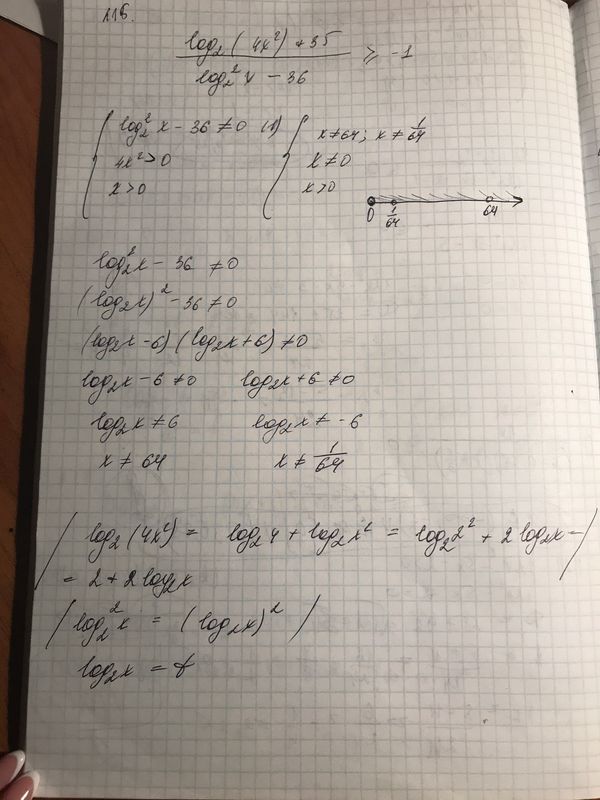 115.
log₂(4x²)+35 / log₂²x − 36 ⩾ −1
log₂²x − 36 ≠ 0 (1) x≠64; x ≠ 1/64
4x²>0 x≠0
x>0 x>0
0 1/64 64
log₂²x − 36 ≠0
(log₂x)² − 36 ≠0
(log₂x − 6)(log₂x + 6) ≠0
log₂x − 6 ≠0 log₂x + 6 ≠0
log₂x ≠ 6 log₂x ≠ −6
x ≠ 64 x ≠ 1/64
/ log₂(4x²) = log₂4 + log₂x² = log₂2² + 2log₂x = /
= 2 + 2log₂x
/ log₂²x = (log₂x)² /
log₂x = t